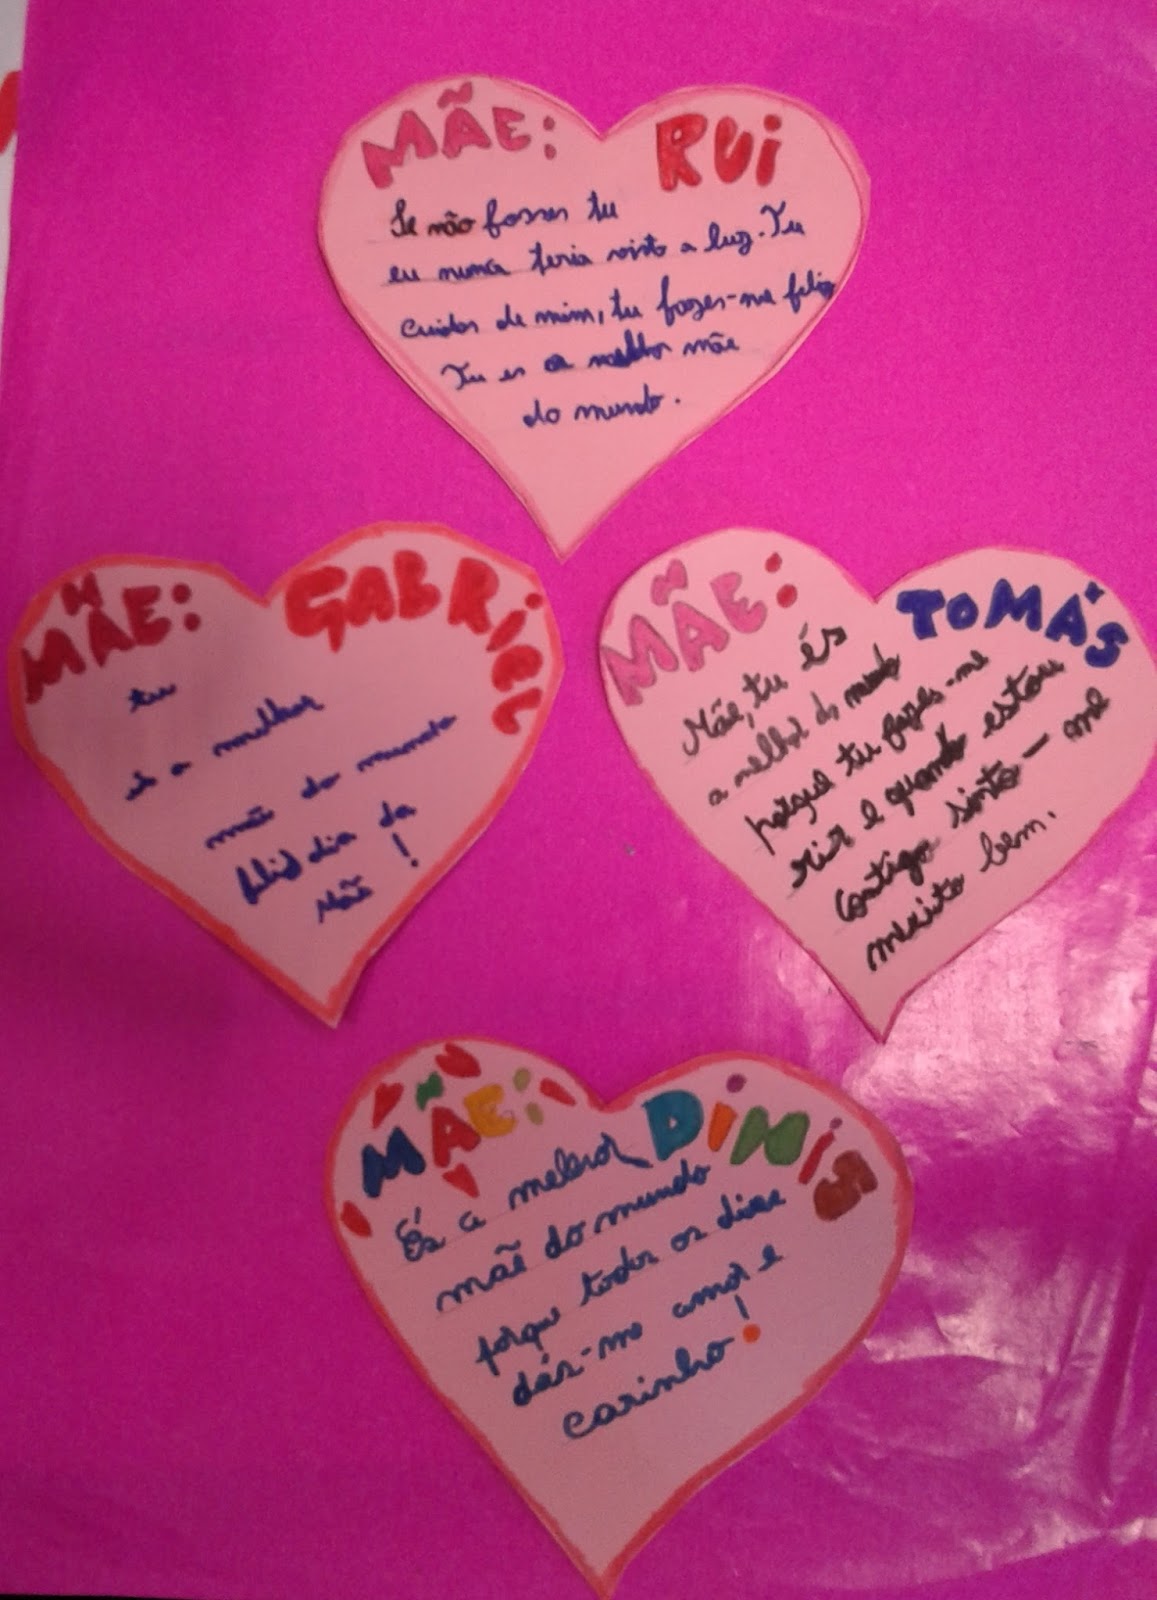 MÃE: RUI
Se não fosses tu
eu nunca teria visto a luz. Tu
cuidas de mim, tu fazes-me feliz
Tu es a melhor mãe
do mundo.
MÃE: GABRIEL
tu
és a melhor
mãe do mundo
feliz dia da
Mãe !
MÃE: TOMÁS
Mãe, tu és
a melhor do mundo
porque tu fazes-me
rir e quando estou
contigo sinto-me
muito bem.
MÃE: DINIS
És a melhor
mãe do mundo
porque todos os dias
dás-me amor e
carinho!